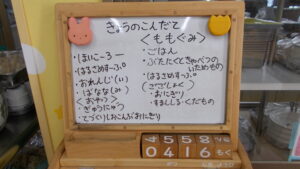 きょうのこんだて
〈ももぐみ〉
・ほいこーろー
・はるさめすーぷ。
・おれんじ(い)
・ばなな(み)
〈おやつ〉
・ぎゅうにゅう
・てづくりしおこんぶおにぎり
・ごはん
・ぶたにくときゃべつの
いためもの
・はるさめすーぷ。
〈ごごしょく〉
・おにぎり
・すましじる・くだもの
4558
0416